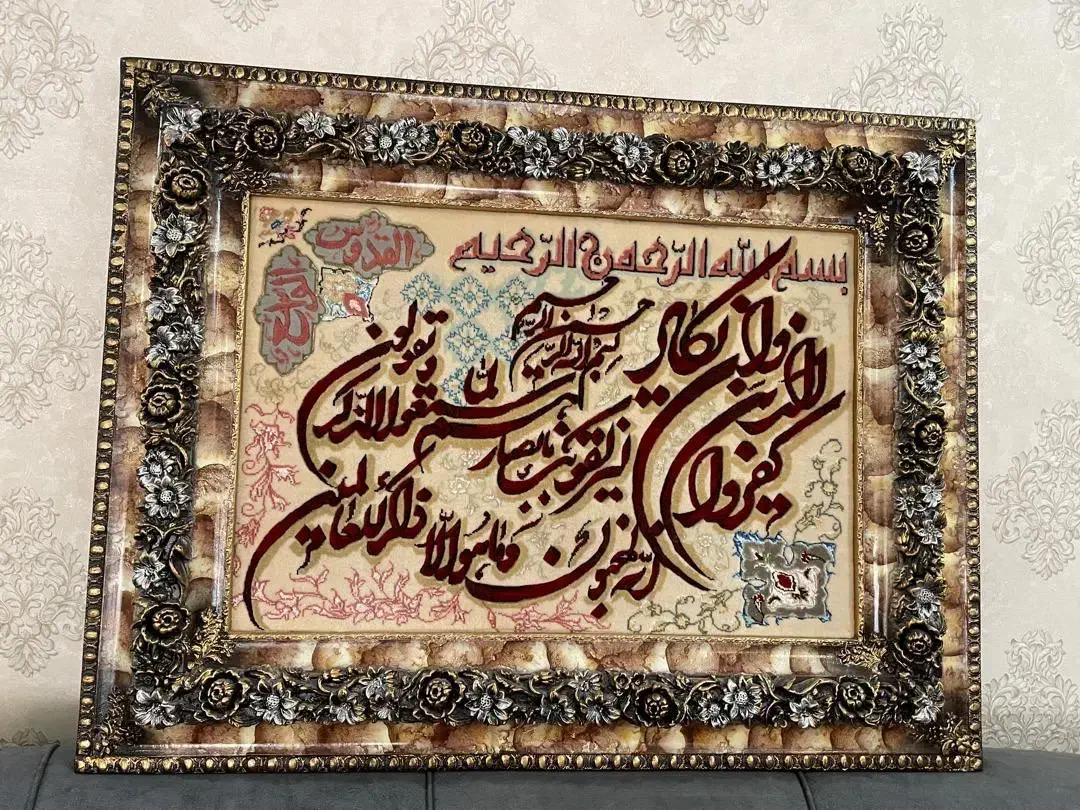 بسم الله الرّحمن الرّحيم
القدوس
بسم الله الرحمن الرحيم
وان يكاد الذين كفروا
ليزلقونك بابصارهم لما سمعوا الذكر ويقولون
انه لمجنون وما هو الا ذكر للعالمين